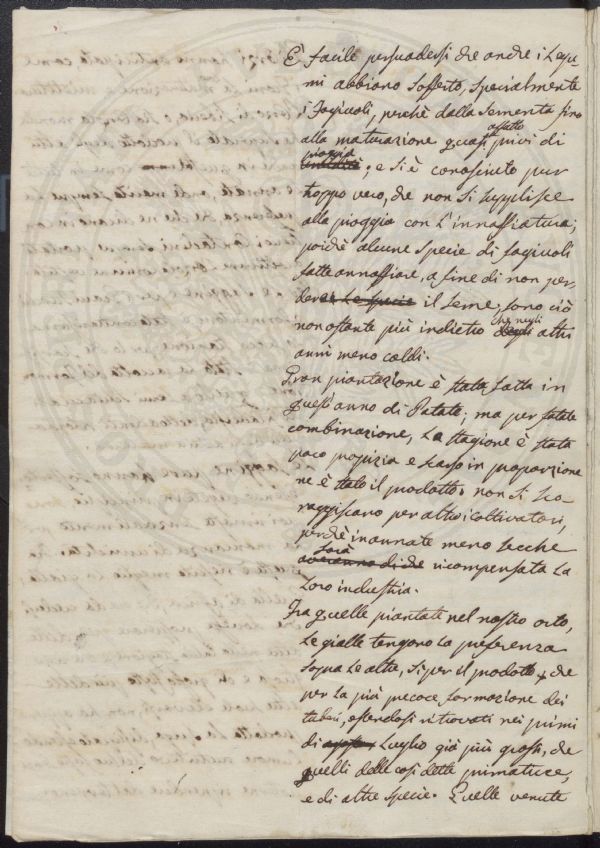 È facile persuadersi che anche i legu-
mi abbiano sofferto, specialmente
i fagiuoli, perchè dalla sementa fino
alla maturazione quasi affatto privi di
pioggia; e si è conosciuto pur
troppo vero, che non si supplisce
alla pioggia con l'innaffiatura;
poichè alcune specie di fagiuoli
fatte annaffiare, a fine di non per-
dere le specie il seme, sono ciò
non ostante più indietro che negli altri
anni meno caldi.
Gran piantazione è stata fatta in
quest'anno di Patate; ma per fatale
combinazione, la stagione è stata
poco propizia e scarso in proporzione
ne è stato il prodotto: non si sco-
raggiscano per altro i coltivatori,
perchè in annate meno secche
averanno di che sarà ricompensata la
loro industria.
Fra quelle piantate nel nostro orto,
le gialle tengono la preferenza
sopra le altre, sì per il prodotto, che
per la più precoce formazione dei
tuberi, essendosi ritrovati nei primi
di Luglio già più grossi, che
quelli delle così dette primaticce,
e di altre specie. Quelle venute